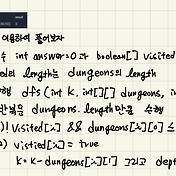 result
이용하여 풀어보자
수 int answer=0과 boolean[] visited
length는 dungeons의 length
행 dfs (int k, int[][] dungeons, in
반복문 dungeons.length만큼 수행
)! Visited[i] && dungeons[i][0] ≤
2) visited[i] = true
k = k - dungeons[i][1] 그리고 dept